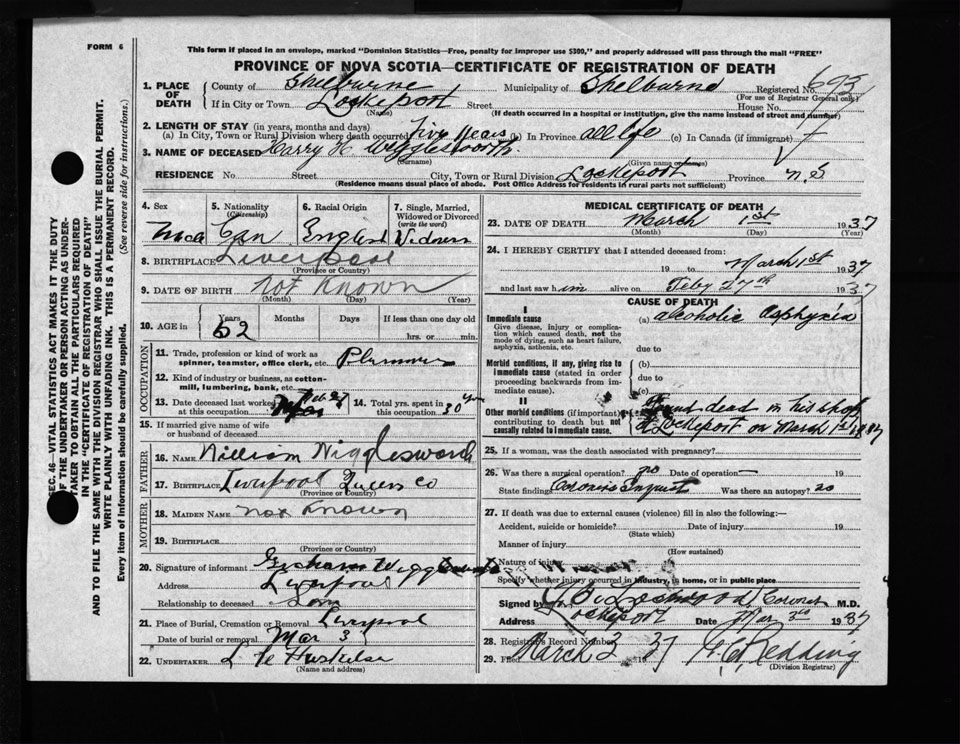 FORM 6
This form if placed in an envelope, marked "Dominion Statistics—Free, penalty for improper use $300," and properly addressed will pass through the mail "FREE"
PROVINCE OF NOVA SCOTIA—CERTIFICATE OF REGISTRATION OF DEATH
SEC. 46—VITAL STATISTICS ACT MAKES IT THE DUTY
OF THE UNDERTAKER OR PERSON ACTING AS UNDER-
TAKER TO OBTAIN ALL THE PARTICULARS REQUIRED
IN THE "CERTIFICATE OF REGISTRATION OF DEATH"
AND TO FILE THE SAME WITH THE DIVISION REGISTRAR WHO SHALL ISSUE THE BURIAL PERMIT.
WRITE PLAINLY WITH UNFADING INK. THIS IS A PERMANENT RECORD.
Every item of information should be carefully supplied. (See reverse side for instructions.)
1. PLACE OF DEATH
County of Shelburne Municipality of Shelburne Registered No. 693
(For use of Registrar General only)
If in City or Town Lockeport Street House No.
(Name) (If death occurred in a hospital or institution, give the name instead of street and number)
2. LENGTH OF STAY (in years, months and days)
(a) In City, Town or Rural Division where death occurred Five Years (b) In Province all life (c) In Canada (if immigrant)
3. NAME OF DECEASED Harry H Wigglesworth
(Surname) (Given name or names)
RESIDENCE No. Street City, Town or Rural Division Lockeport Province N.S
(Residence means usual place of abode. Post Office Address for residents in rural parts not sufficient)
4. Sex
5. Nationality (Citizenship) Can
6. Racial Origin English
7. Single, Married, Widowed or Divorced (write the word)
8. BIRTHPLACE Liverpool
(Province or Country)
9. DATE OF BIRTH Not Known
(Month) (Day) (Year)
10. AGE in Years 62 Months Days If less than one day
hrs. or min.
OCCUPATION
11. Trade, profession or kind of work as spinner, teamster, office clerk, etc.
12. Kind of industry or business, as cotton-mill, lumbering, bank, etc.
13. Date deceased last worked at this occupation
14. Total yrs. spent in this occupation 30
15. If married give name of wife or husband of deceased
FATHER
16. NAME William Wigglesworth
17. BIRTHPLACE Liverpool Queens Co
(Province or Country)
MOTHER
18. MAIDEN NAME not known
19. BIRTHPLACE
(Province or Country)
20. Signature of informant
Address Liverpool
Relationship to deceased Son
21. Place of Burial, Cremation or Removal Liverpool
Date of burial or removal Mar 3
22. UNDERTAKER
(Name and address)
MEDICAL CERTIFICATE OF DEATH
23. DATE OF DEATH March 1st 1937
(Month) (Day) (Year)
24. I HEREBY CERTIFY that I attended deceased from:
19 to March 1st 1937
and last saw him alive on Feby 27th 1937
CAUSE OF DEATH
I
Immediate cause
Give disease, injury or complication which caused death, not the mode of dying, such as heart failure, asphyxia, asthenia, etc.
(a) alcoholic asphyxia
due to
Morbid conditions, if any, giving rise to immediate cause (stated in order proceeding backwards from immediate cause).
(b)
due to
(c)
II
Other morbid conditions (if important) contributing to death but not causally related to immediate cause.
Found dead in his shop
at Lockeport on March 1st 1937
25. If a woman, was the death associated with pregnancy?
26. Was there a surgical operation? no Date of operation –
State findings Coroners Inquest Was there an autopsy? no
27. If death was due to external causes (violence) fill in also the following:—
Accident, suicide or homicide? Date of injury 19
(State which)
Manner of injury
(How sustained)
Nature of injury
Specify whether injury occurred in industry, in home, or in public place
Signed by Lockwood Coroner M.D.
Address Lockeport Date Mar 3rd 1937
28. Registrar's Record Number
29. Filed March 3 1937 Redding
(Division Registrar)